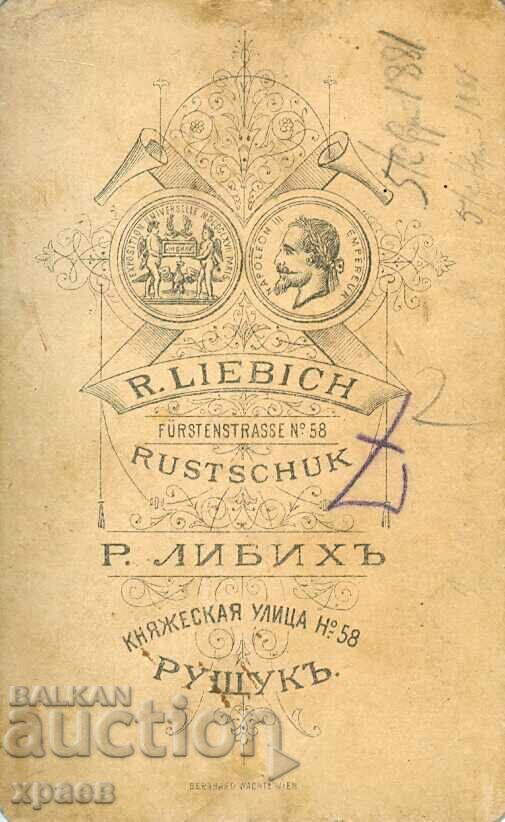 EXPOSITION UNIVERSELLE MDCCCLXVII PARIS
NAPOLEON III EMPEREUR
R. LIEBICH
FÜRSTENSTRASSE No 58
RUSTSCHUK
Р. ЛИБИХЪ
КНЯЖЕСКАЯ УЛИЦА No 58
РУЩУКЪ.
BERNHARD WACHTL WIEN
BALKAN
auction
храов
1881